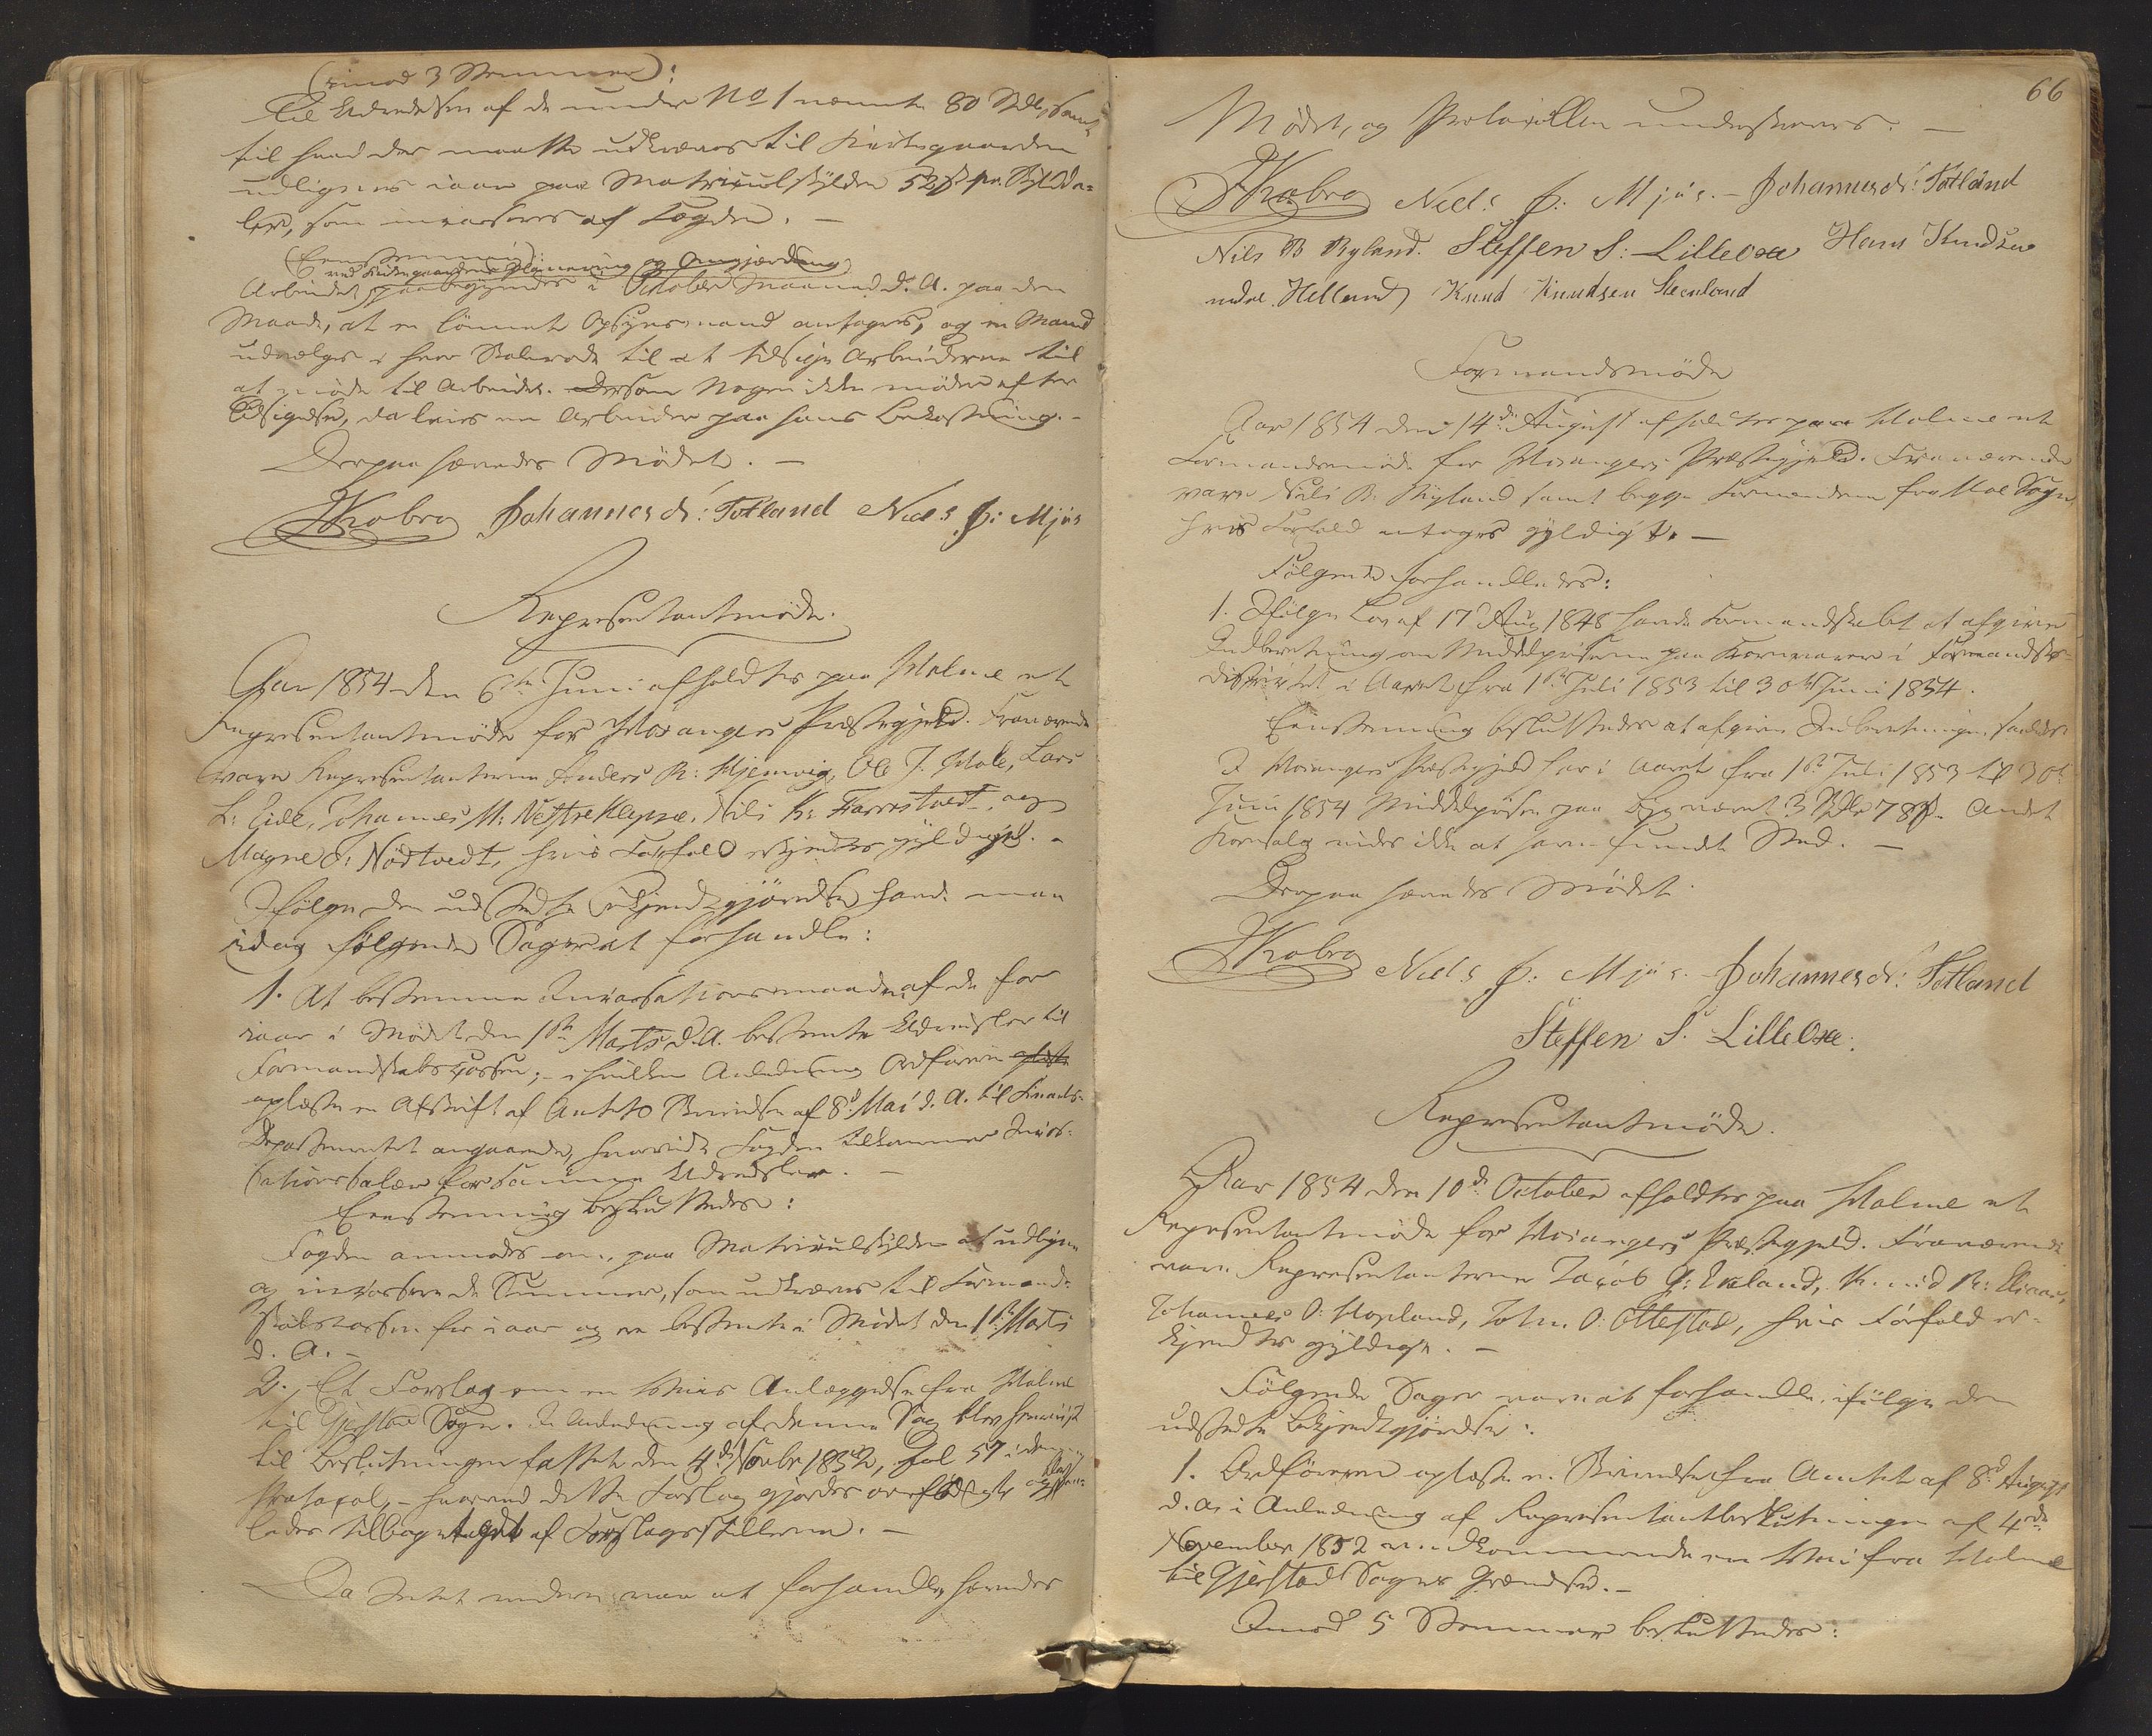 (imod 3 Stemmer):
Til Udredelsen af de under No 1 nævnte 80 Spdl, samt
til hvad der maatte udkræves til Kirkegaarden
udlignes iaar paa Matriculskylden 52 β pr. Skyldda-
ler, som incasseres af Fogden. —
(Eenstemmig):
ved Kirkegaardens Planering og Omgjærdning
Arbeidet paabegyndes i October Maaned d. A. paa den
Maade, at en lønnet Opsynsmand antages, og en Mand
udvælges i hver Skolerode til at tilsige Arbeiderne til
at møde til Arbeidet. Dersom Nogen ikke møder efter
Tilsigelse, da leies en Arbeider paa hans Bekostning. –
Derpaa hævedes Mødet. —
Kobro Johannes d: Totland Niels J: Mjøs
Representantmøde.
Aar 1854 den 6te Juni afholdtes paa Holme et
Representantmøde for Hosangers Præstegjeld. Fraværende
vare Repræsentanterne Anders R: Hjemvig, Ole J. Hole, Lars
L: Eide, Johannes M: Vestre Kleppe, Nils K: Farestvedt, og
Magne J: Nødtvedt, hvis Forfald erkjendtes gyldigt. –
Ifølge den udstedte Bekjendtgjørelse havde man
idag følgende Sager at forhandle:
1. At bestemme Incassationsmaaden af de for
iaar i Mødet den 1ste Marts d. A. bestemte Udredsler til
Formandskabscassen; – i hvilken Anledning Ordføreren
oplæste en Afskrift af Amtets Skrivelse af 8d Mai d. A. til Finants-
Departementet angaaende, hvorvidt Fogden tilkommer Incas-
sationssalær for samme Udredsler. —
Eenstemmig besluttedes:
Fogden anmodes om, paa Matriculskylden at udligne
og incassere de Summer, som udkræves til Formand-
skabscassen for iaar og ere bestemte i Mødet den 1ste Marts
d. A. –
2. Et Forslag om en Veis Anlæggelse fra Holme
til Gjerstad Sogn. I Anledning af denne Sag blev henviist
til Beslutningen fattet den 4de Novbr 1852, Fol 57 i denne
Protocol, – hvorved dette Forslag gjordes overflødigt og
ledes tilbagetaget af Forslagsstillerne. —
Da Intet videre var at forhandle, hævedes
66
Mødet, og Protocollen underskreves. —
Kobro Niels J: Mjøs. – Johannes d: Totland
Nils B Ryland. Steffen S: Lilleoxe Hans Knudsen
nedre Helland Knud Knudsen Steenland
Formandsmøde
Aar 1854 den 14de August afholdtes paa Holme et
Formandsmøde for Hosangers Præstegjeld. Fraværende
vare Nils B. Ryland samt begge Formændene fra Moe Sogn,
hvis Forfald antoges gyldigt. —
Følgende forhandledes:
1. Ifølge Lov af 17d Aug 1848 havde Formandskabet at afgive
Indberetning om Middelpriserne paa Kornvarer i Formandskabs-
districtet i Aaret fra 1ste Juli 1853 til 30te Juni 1854.
Eenstemmig besluttedes at afgive Indberetningen saaledes:
I Hosangers Præstegjeld har i Aaret fra 1ste Juli 1853 til 30te
Juni 1854 Middelprisen paa Byg været 3 Spdlr 78 β. Andet
Kornsalg vides ikke at have fundet Sted. —
Derpaa hævedes Mødet.
Kobro Niels J: Mjøs. Johannes d: Totland
Steffen S. Lilleoxe.
Representantmøde.
Aar 1854 den 10de October afholdtes paa Holme et
Representantmøde for Hosangers Præstegjeld. Fraværende
vare Repræsentanterne Jacob J: Eikland,
Johannes O: Hopland, Johs. O: Ottestad, hvis Forfald er-
kjendtes gyldigt. —
Følgende Sager vare at forhandle, ifølge den
udstedte Bekjendtgjørelse:
1. Ordføreren oplæste en Skrivelse fra Amtet af 8d August
d. A. i Anledning af Repræsentantbeslutningen af 4de
November 1852 vedkommende en Vei fra Holme
til Gjerstad Sogns Grændse. –
Imod 5 Stemmer besluttedes: